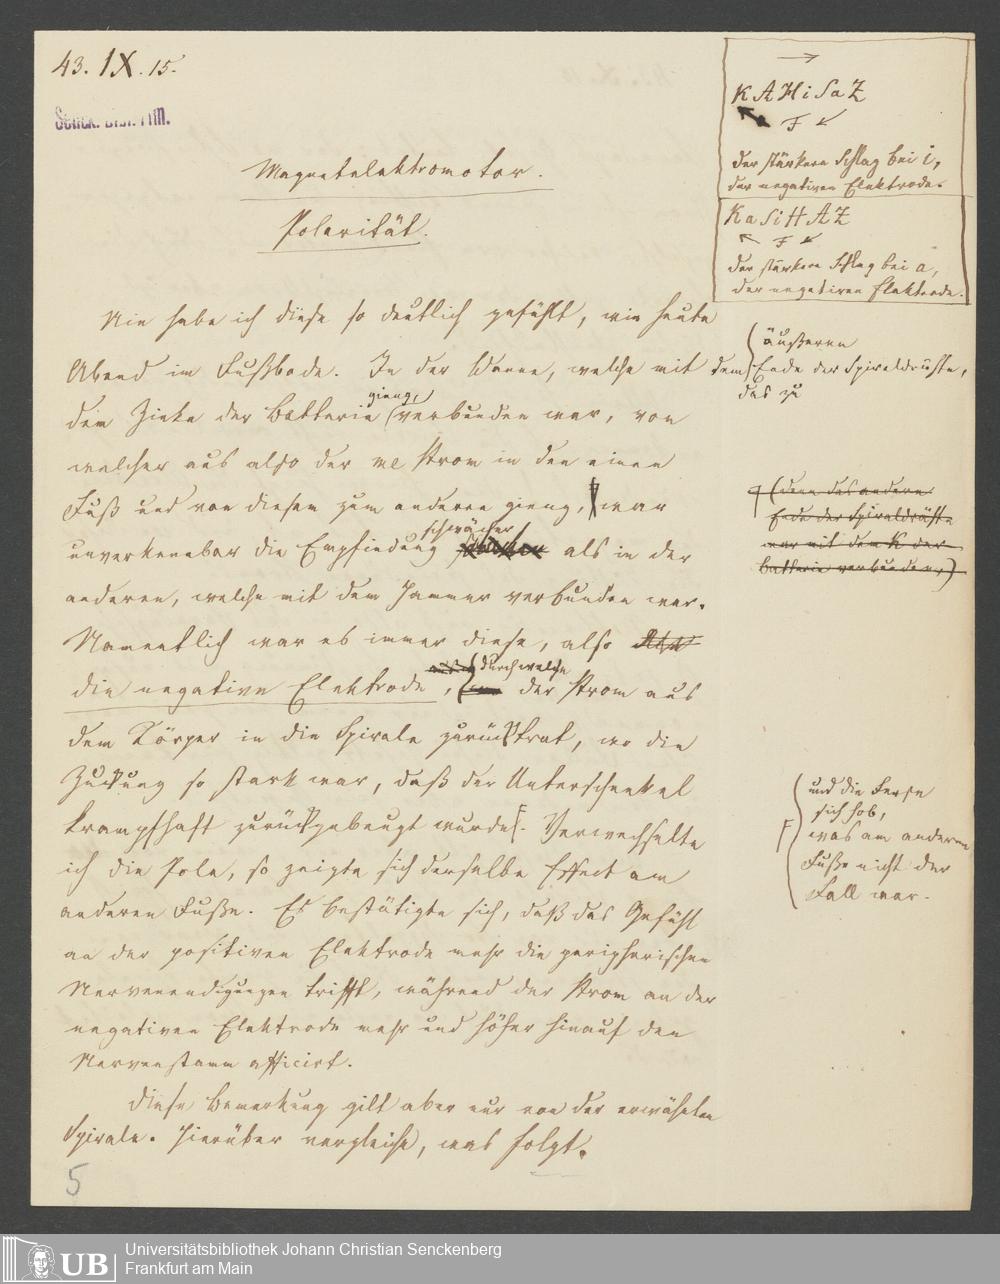 43. IX. 15.
Senck. Bibl. Ffm.
Magnetelektromotor.
Polarität.
→
KAHiSaZ
F
der stärkere Schlag bei i,
der negativen Elektrode.
KaSiHAZ
F
der stärkere Schlag bei a,
der negativen Elektrode.
Nie habe ich diese so deutlich gefühlt, wie heute
Abend im Fußbade. In der Wanne, welche mit dem
äußeren
Ende der Spiraldrähte,
das zu
dem Zinke der Batterie gieng, verbunden war, von
welcher aus also der Strom in den einen
Fuß und von diesem zum anderen gieng, war
(denn das andere
Ende der Spiraldrähte
war mit dem K der
Batterie verbunden)
unverkennbar die Empfindung schwächer als in der
anderen, welche mit dem Hammer verbunden war.
Namentlich war es immer diese, also
die negative Elektrode, durch welche der Strom aus
dem Körper in die Spirale zurücktrat, wo die
Zuckung so stark war, daß der Unterschenkel
krampfhaft zurückgebeugt wurde. Verwechselte
und die Ferse
sich hob,
was am anderen
Fuße nicht der
Fall war.
ich die Pole, so zeigte sich derselbe Effect am
anderen Fuße. Es bestätigte sich, daß das Gefühl
an der positiven Elektrode mehr die peripherischen
Nervenendigungen trifft, während der Strom an der
negativen Elektrode mehr und höher hinauf den
Nervenstamm afficirt.
Diese Bemerkung gilt aber nur von der erwähnten
Spirale. Hierüber vergleiche, was folgt.
5
UB
Universitätsbibliothek Johann Christian Senckenberg
Frankfurt am Main